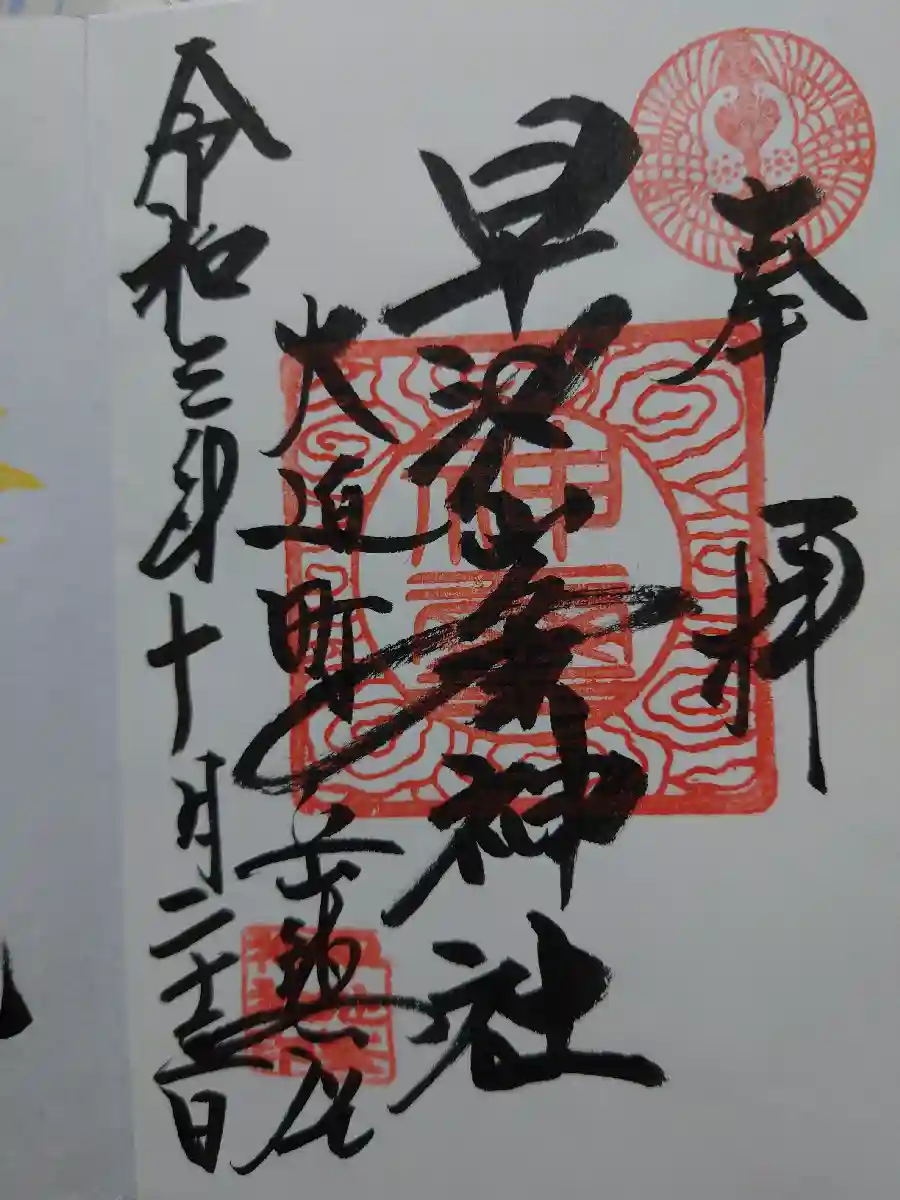 奉拝
早池峯神社
大迫町 岳
令和三年十月二十三日